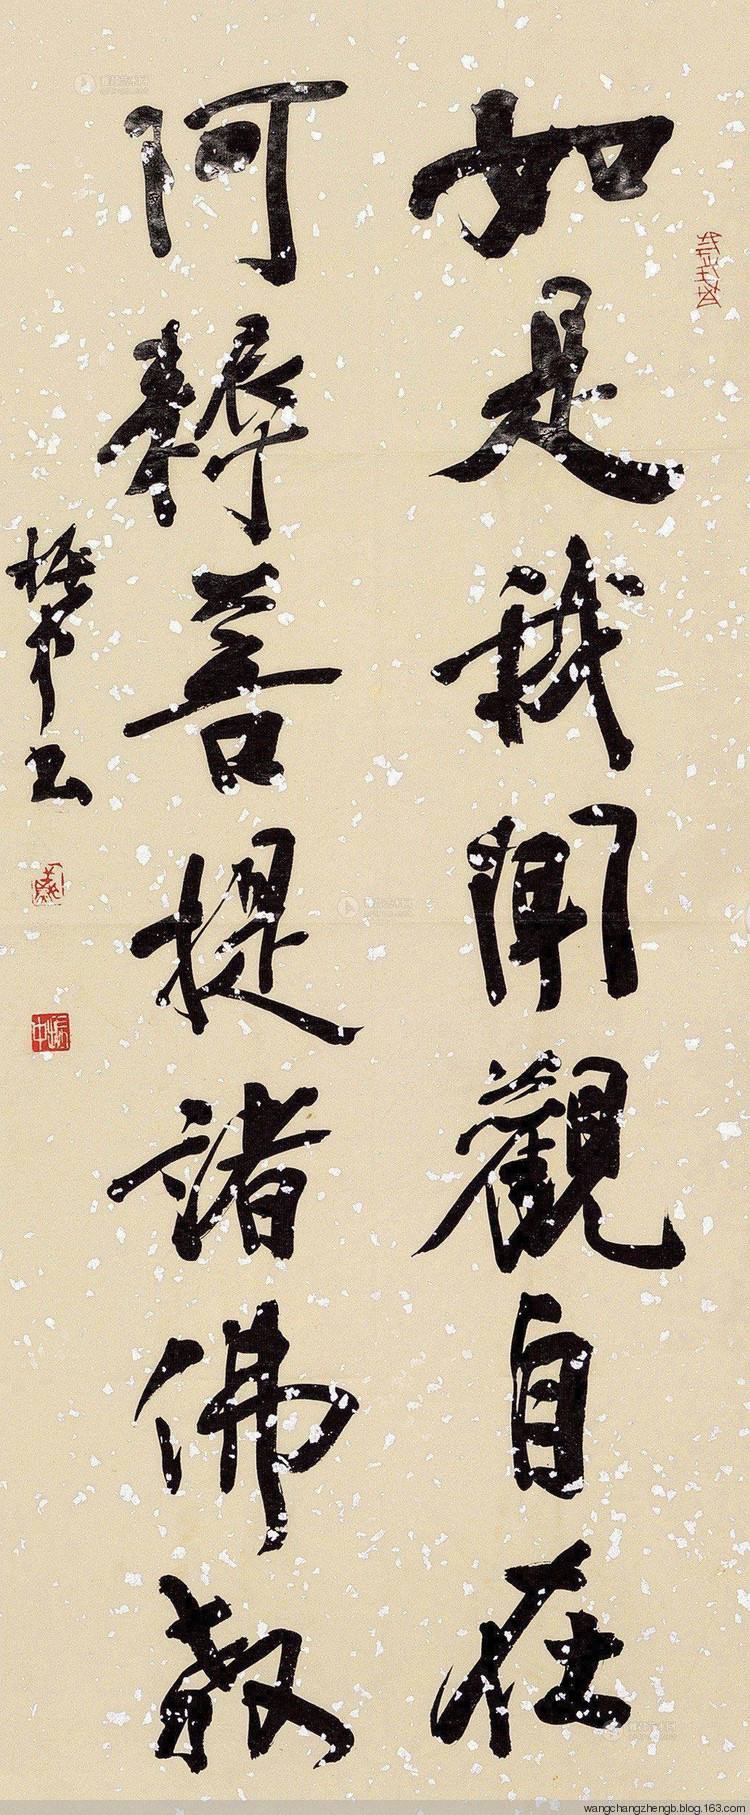 如是我聞觀自在
阿耨菩提諸佛教
振中书
振中
wangchangzhengb.blog.163.com